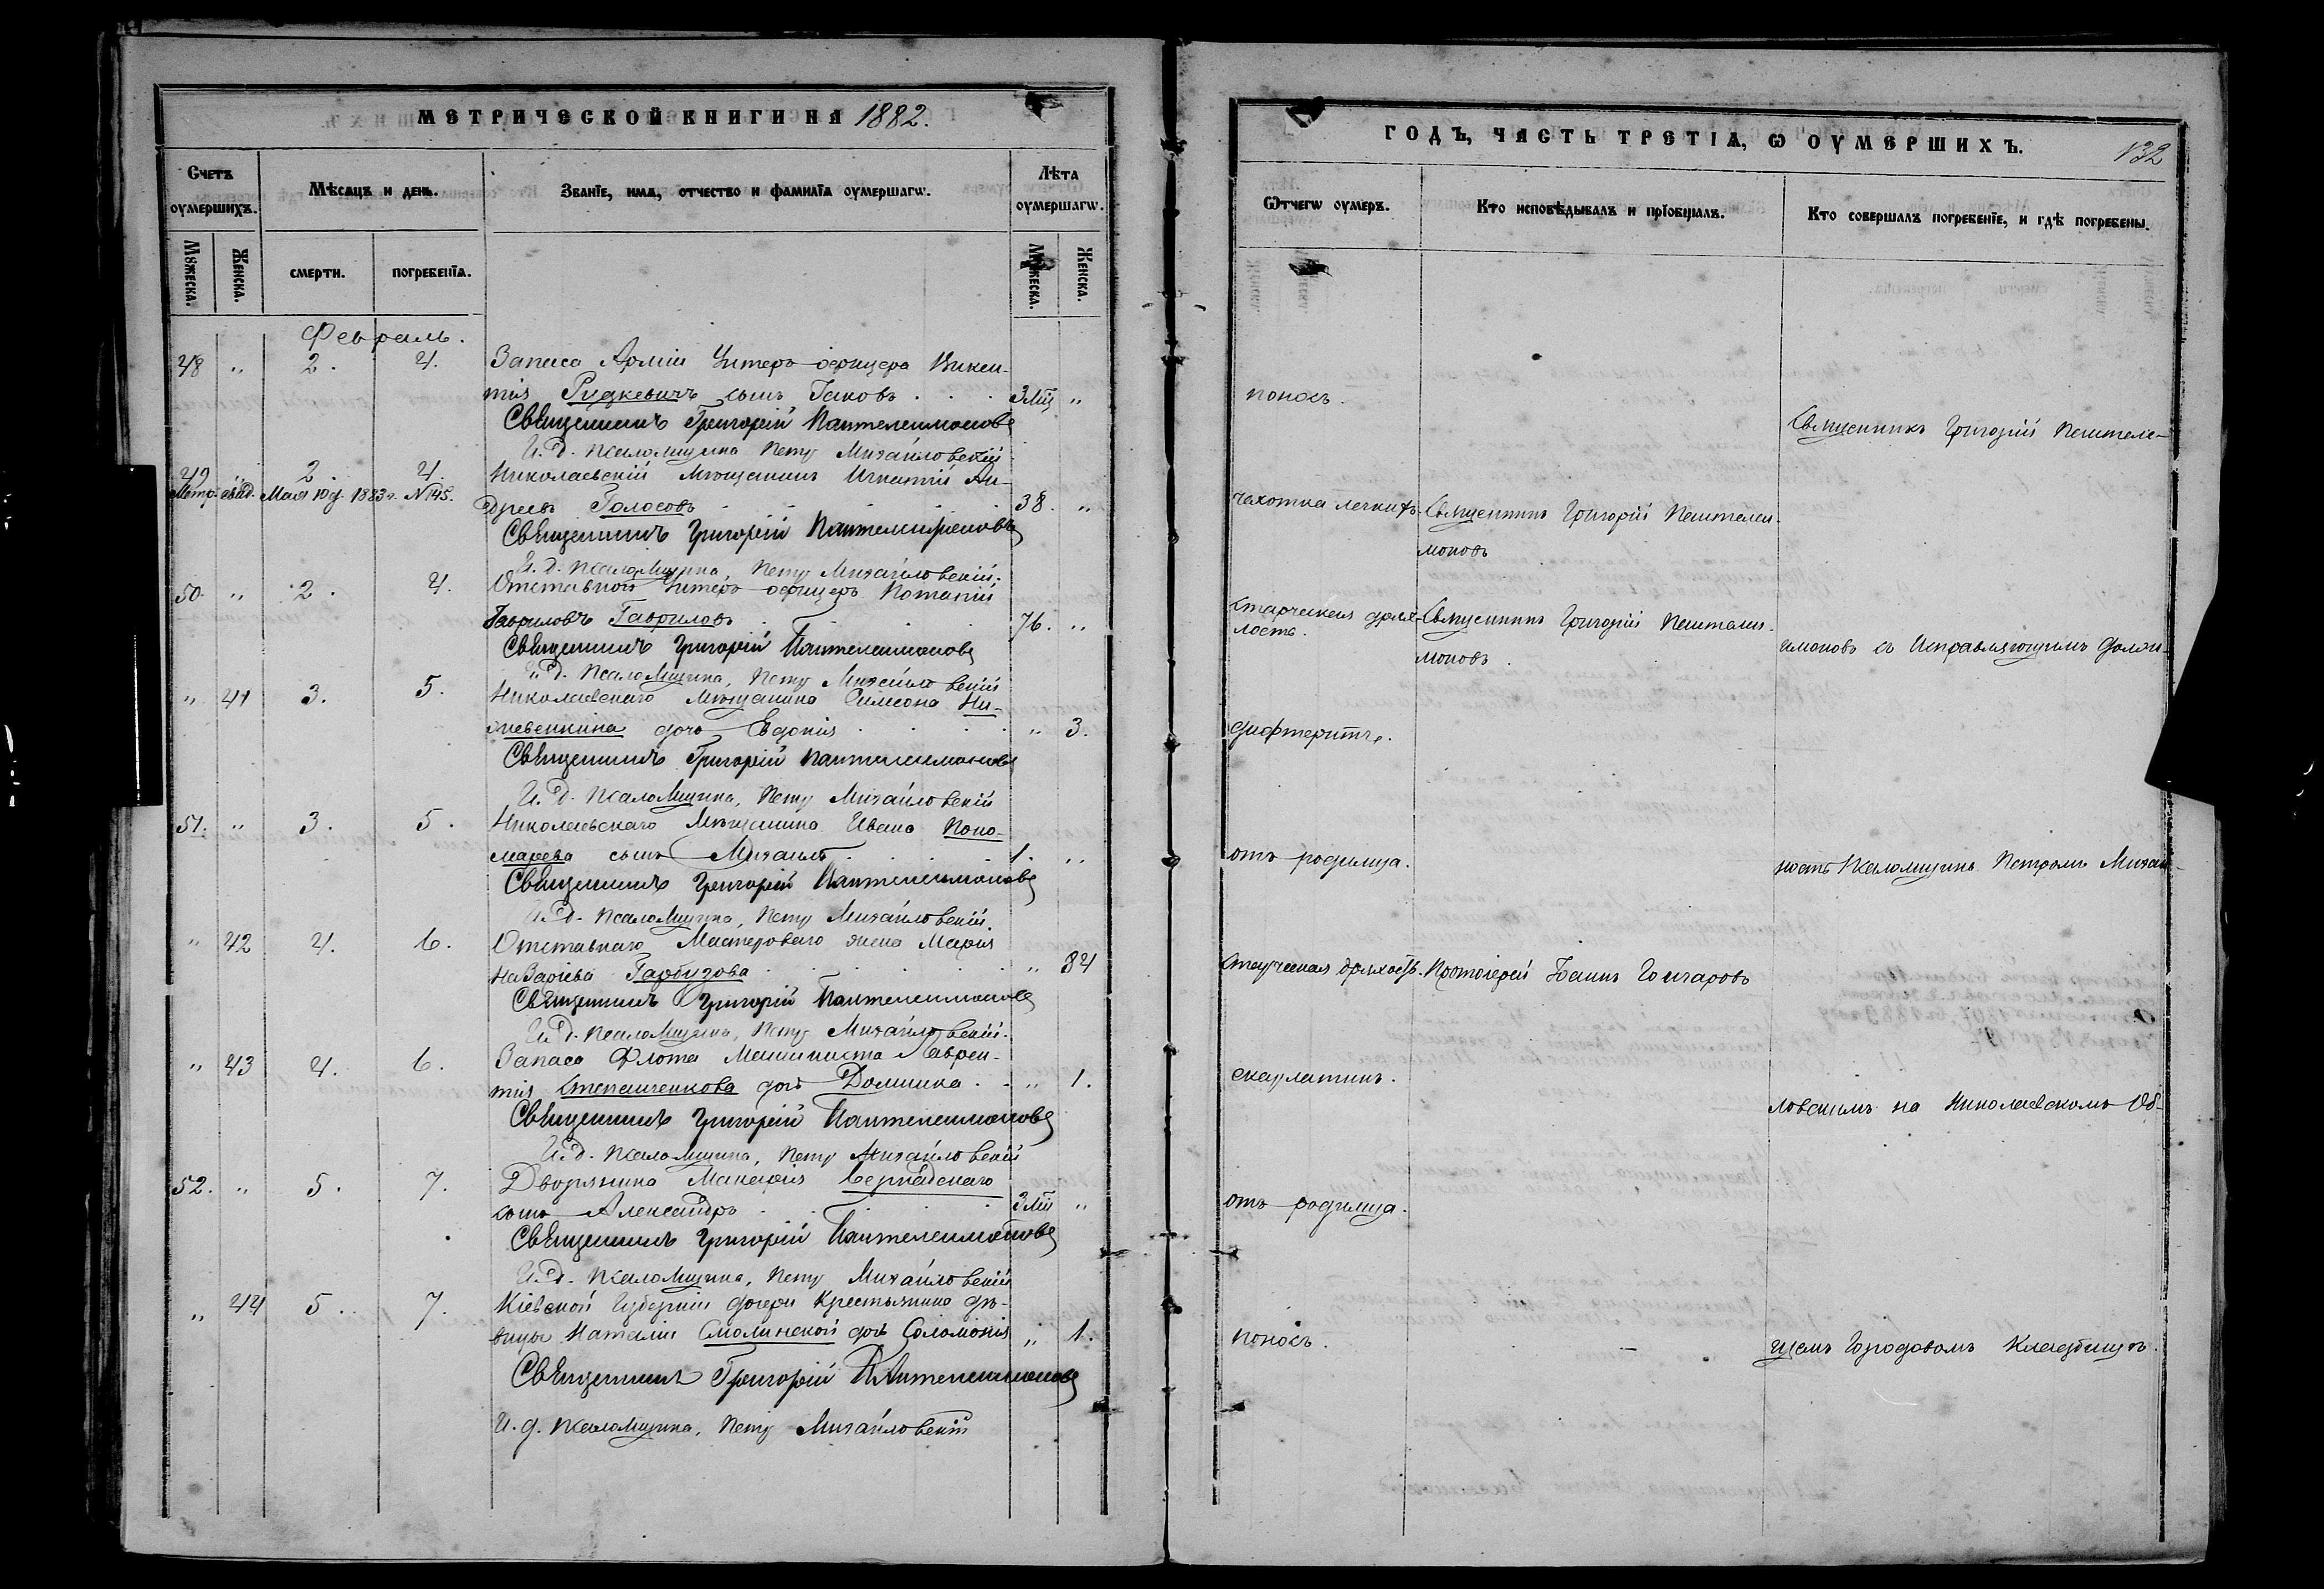 МЕТРИЧЕСКОЙ КНИГИ НА 1882.
Счетъ оумершихъ.
Мѣсяцъ и день.
Званїе, имѧ, отчество и фамилїа оумершагѡ.
Лѣта оумершагѡ.
Мꙋжеска.
Женска.
смерти.
погребенїѧ.
Мꙋжеска.
Женска.
Февраль.
48 " 2. 4. Запаса Арміи Унтеръ-офицера Викен-
тія Рудкевичъ сынъ Іаковъ 3 мц "
Священникъ Григорій Пантелеимоновъ
И. д. псаломщика Петръ Михайловскій
49 " 2. 4. Николаевскій мѣщанинъ Игнатій Ан-
Метр. свид. Мая 10 д. 1883 г. №145.
дреевъ Голосовъ 38. "
Священникъ Григорій Пантелеимоновъ
И. д. псаломщика, Петръ Михайловскій.
50. " 2. 4. Отставной Унтеръ-офицеръ Потапій
Гавриловъ Гавриловъ 76. "
Священникъ Григорій Пантелеимоновъ
И. д. псаломщика, Петръ Михайловскій
" 41 3. 5. Николаевскаго мѣщанина Симеона
дочь Евдокія " 3.
Священникъ Григорій Пантелеимоновъ
И. д. псаломщика, Петръ Михайловскій
51. " 3. 5. Николаевскаго мѣщанина Ивана Поно-
марева сынъ Михаилъ 1. "
Священникъ Григорій Пантелеимоновъ
И. д. псаломщика, Петръ Михайловскій.
" 42 4. 6. Отставнаго Мастероваго жена Марія
Назаріева Гарбузова " 84
Священникъ Григорій Пантелеимоновъ
И. д. псаломщика, Петръ Михайловскій.
" 43 4. 6. Запаса Флота Машиниста Лаврен-
тія Степанченкова дочь Домника " 1.
Священникъ Григорій Пантелеимоновъ
И. д. псаломщика, Петръ Михайловскій
52. " 5. 7. Дворянина Макарія
сынъ Александръ 3 мц "
Священникъ Григорій Пантелеимоновъ
И. д. псаломщика, Петръ Михайловскій
" 44 5. 7. Кіевской Губерніи дочери Крестьянина дѣ-
вицы Наталіи Смолинской дочь Соломонія " 1.
Священникъ Григорій Пантелеимоновъ
И. д. псаломщика, Петръ Михайловскій
ГОДЪ, ЧАСТЬ ТРЕТІѦ, Ѡ ОУМЕРШИХЪ.
132
Ѿчегѡ оумеръ.
Кто исповѣдывалъ и прїобщалъ.
Кто совершалъ погребенїе, и гдѣ погребены.
поносъ.
Священникъ Григорій Пантеле-
чахотка легкихъ. Священникъ Григорій Пантелеи-
моновъ
Старческая дрях-
лость. Священникъ Григорій Пантелеи-
моновъ.
имоновъ съ Исправляющимъ долж-
дифтеритъ.
отъ родимца.
ность Псаломщика Петромъ Михай-
Старческая дряхлость. Протоіерей Іоаннъ Гончаровъ
скарлатинъ.
ловскимъ на Николаевскомъ Об-
отъ родимца.
поносъ.
щемъ Городовомъ Кладбищѣ.